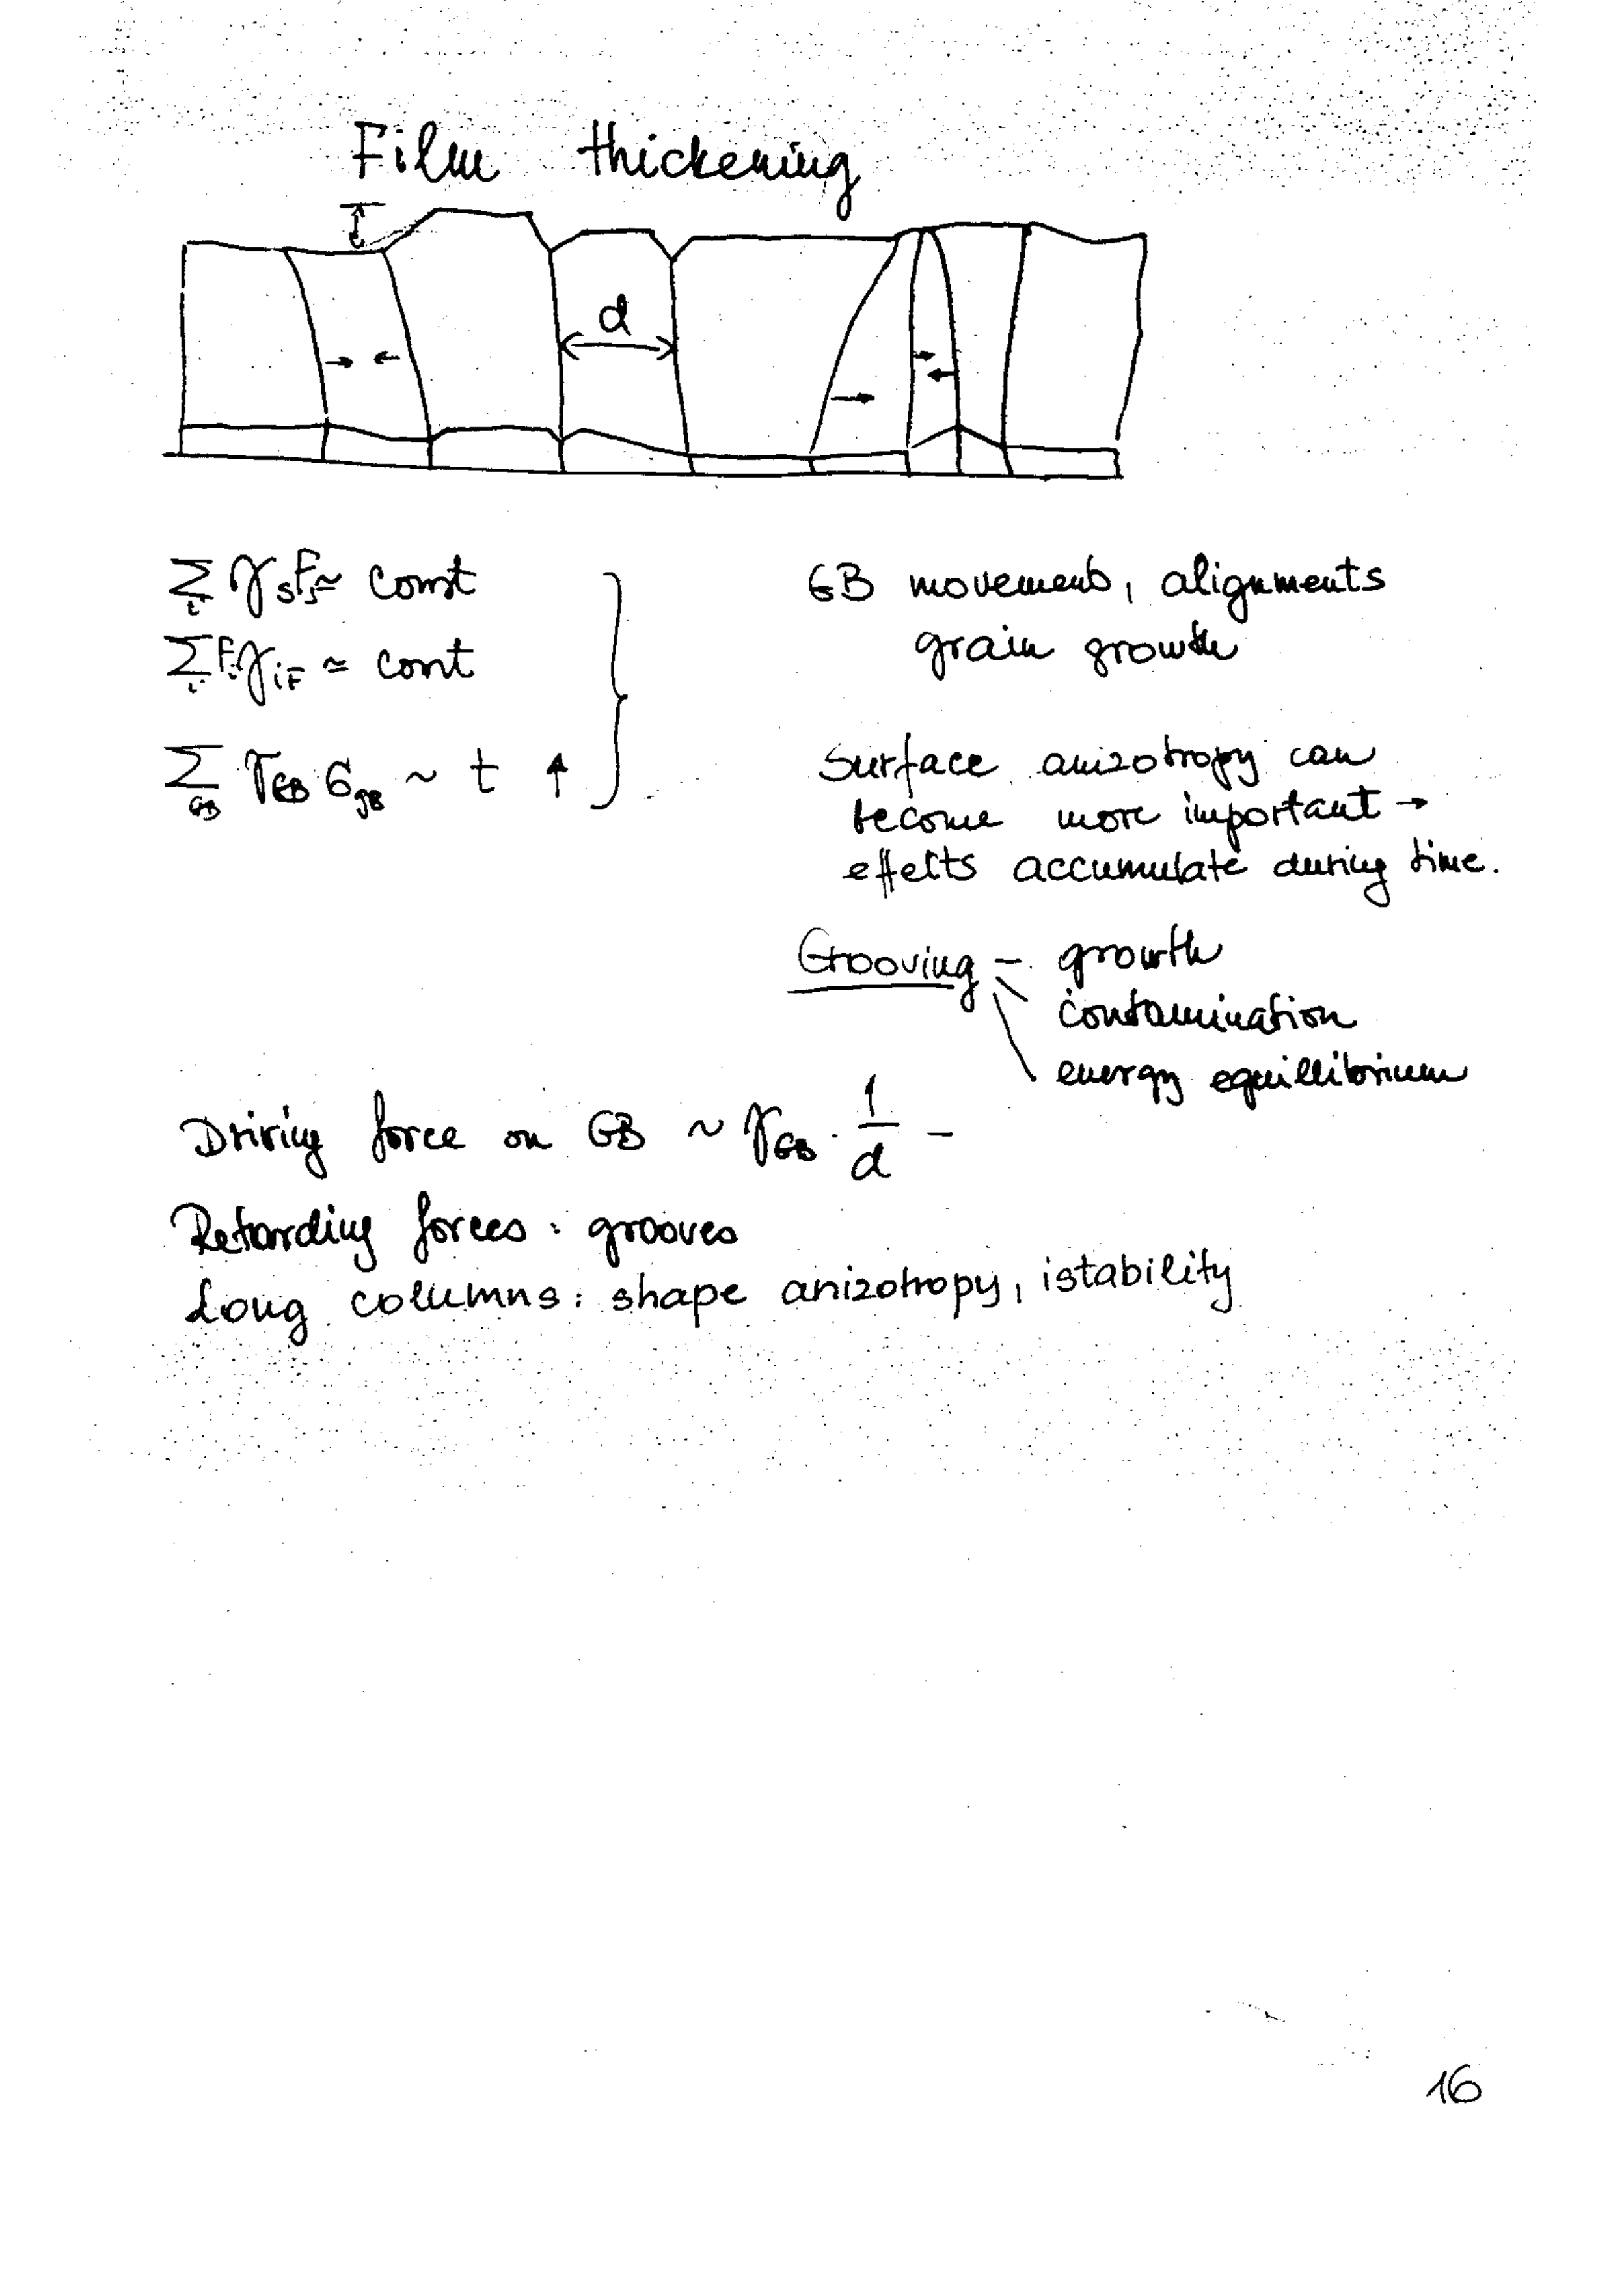 Film thickening
d
∑ᵢ γₛFₛ ≈ const
∑ᵢ Fᵢ γ_iF ≈ const
∑_GB γ_GB G_gB ~ t ↑
GB movement, alignments
grain growth
Surface anizotropy can
become more important →
effects accumulate during time.
Grooving – growth
contamination
energy equillibrium
Driving force on GB ~ γ_GB · 1/d –
Retarding forces : grooves
Long columns : shape anizotropy, istability
16